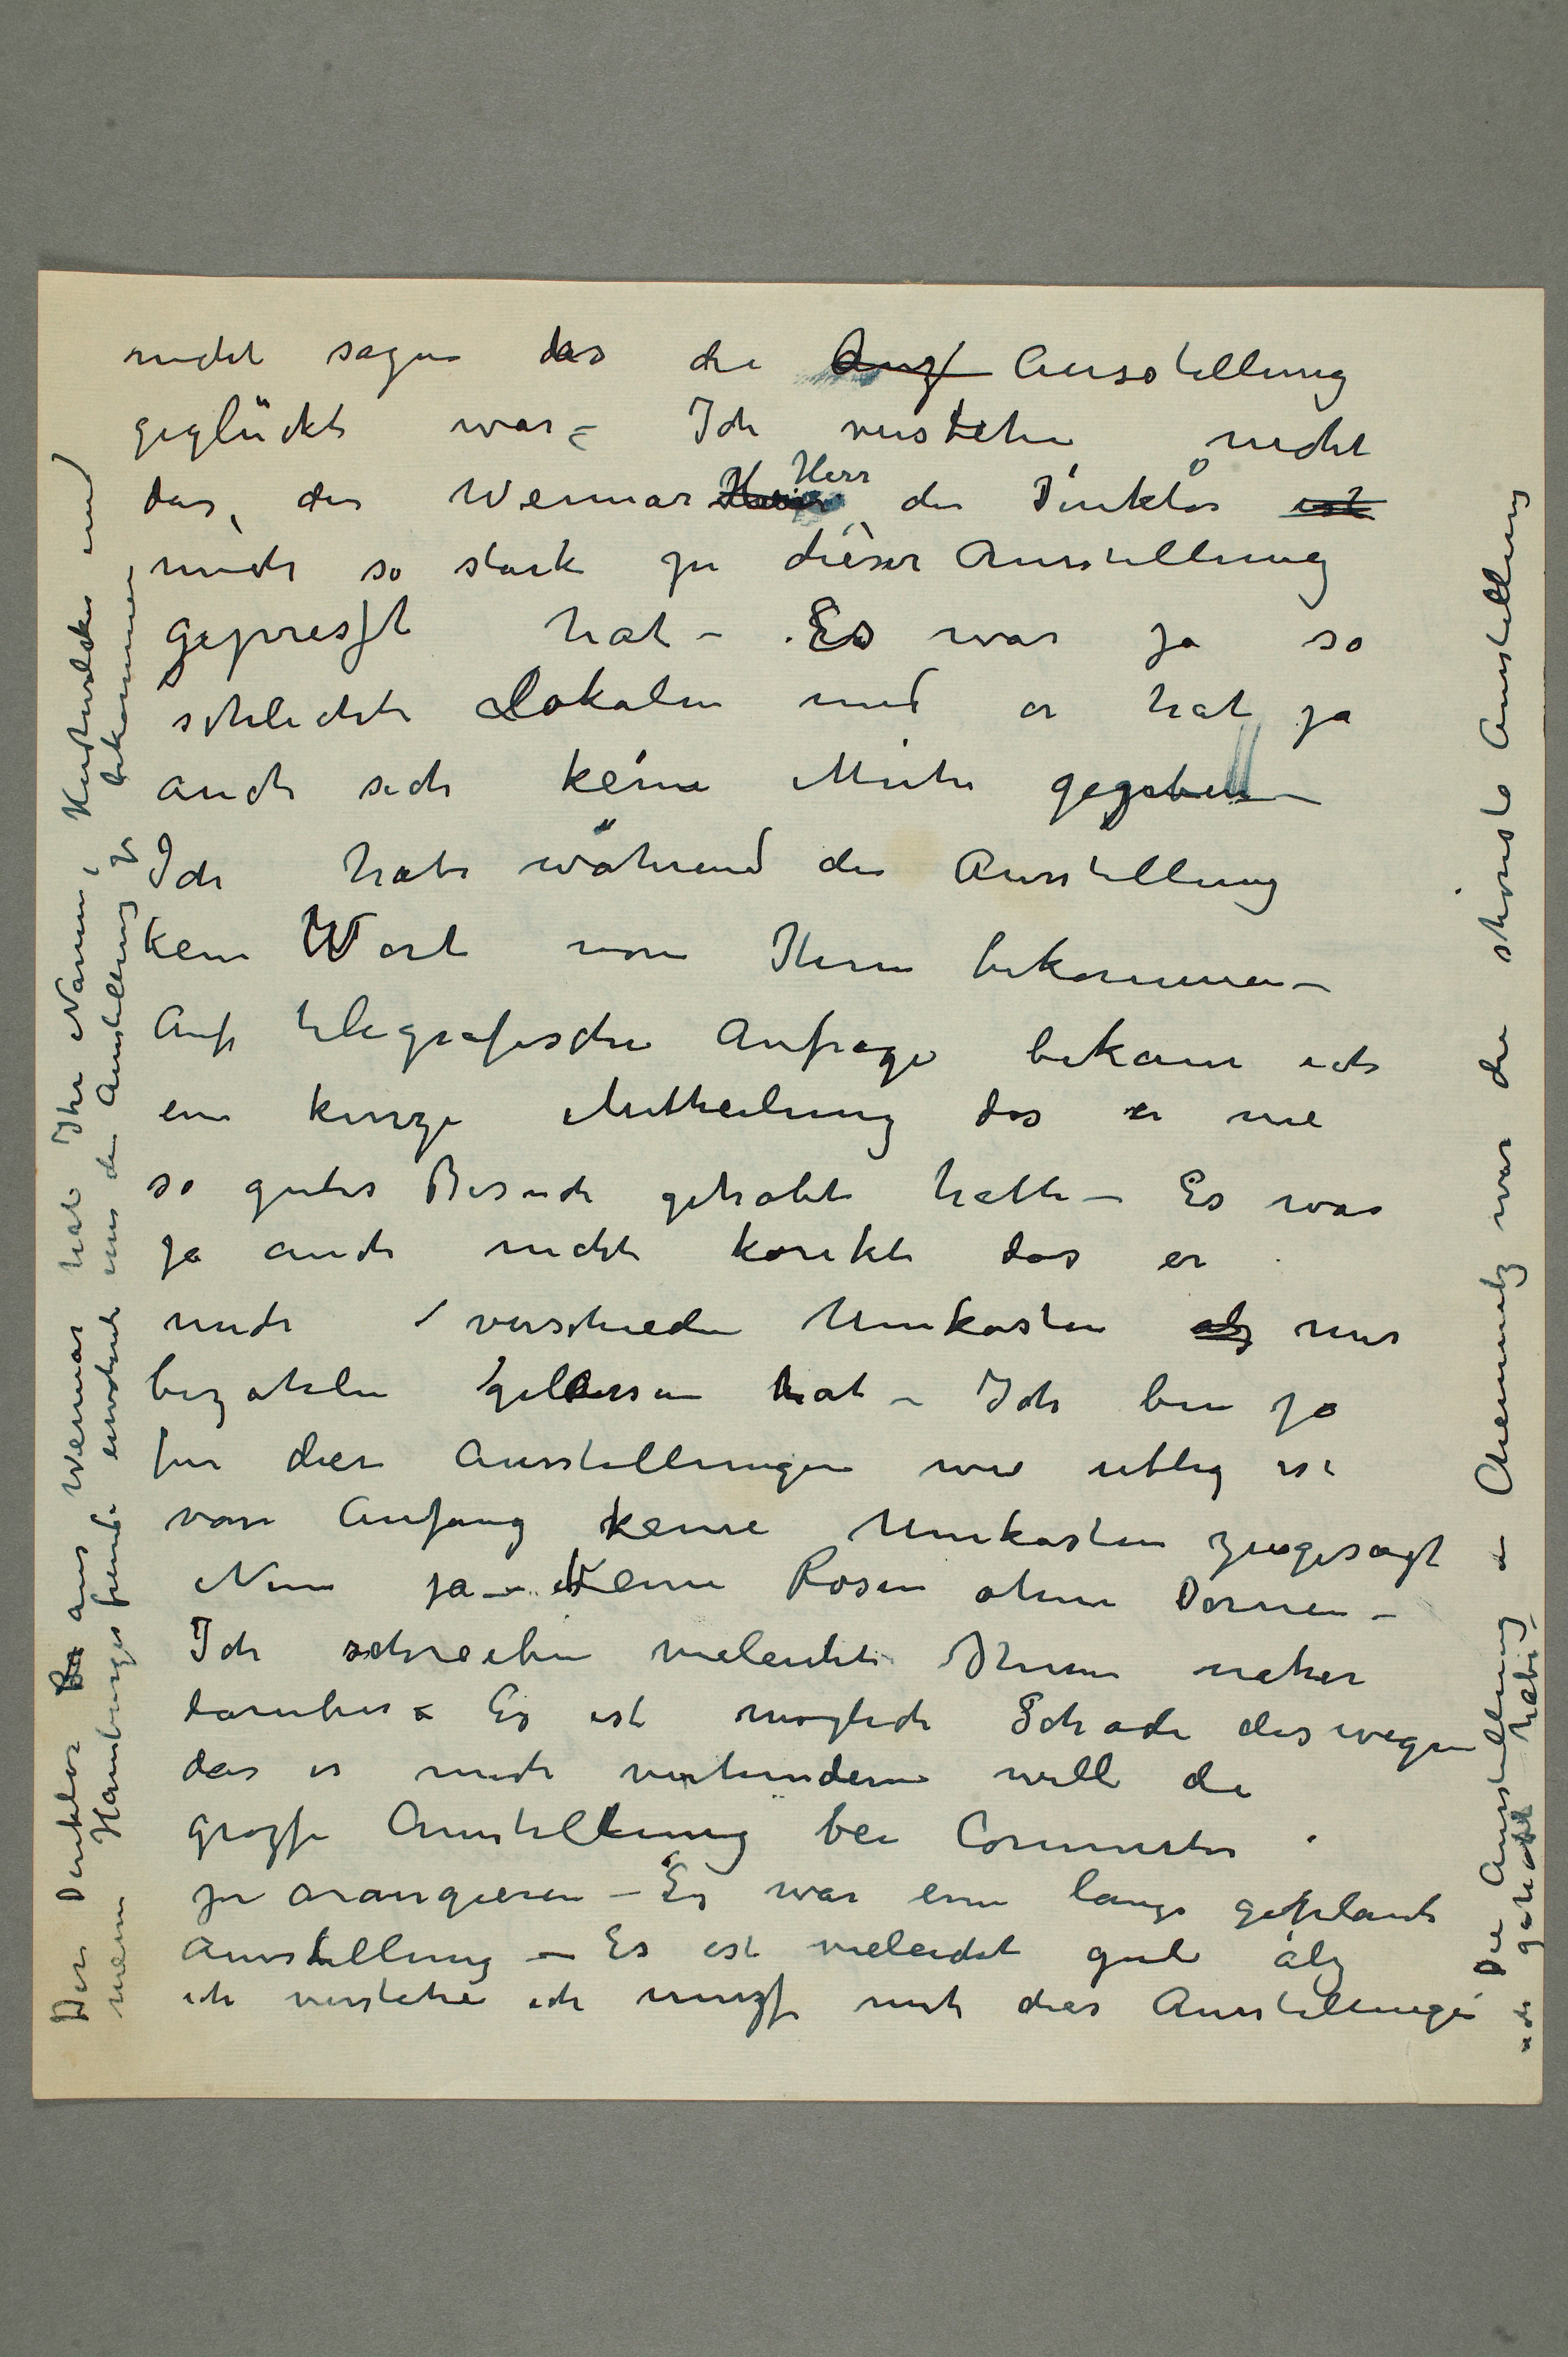 nicht sagen das die Ausstellung
geglückt war – Ich verstehe nicht
das, der Weimar Herr der Direktor
mich so stark zu dieser Ausstellung
gepresst hat – Es war ja so
schlechte Lokalen und er hat ja
auch sich keine Mühe gegeben –
Ich habe während der Ausstellung
kein Wort von Ihm bekommen –
Auf telegrafische Anfrage bekam ich
ein kurze Mittheilung das er nie
so gutes Besuch gehabt hatte – Es war
ja auch nicht korekt das er
mich verschieden Unkosten mir
bezahlen gelassen hat – Ich bin ja
fur diese Ausstellungen wie ublig ist
von Anfang keine Unkosten zugesagt
Nun ja – Keine Rosen ohne Dornen –
Ich schreiben vieleicht Ihnen naher
daruber – Es ist moglich Schade deswegen
das er mich verhindern will die
grozse Ausstellung bei Commeter
zu arangieren – Es war eine lange geplante
Ausstellung – Es ist vieleicht gut alz
ich verstehe ich muzs mit dies Ausstellungen
Der Direktor aus Weimar hat Ihr Namen, Kustwelder und
mein Hamburger freund erwähnt um die Ausstellung zu bekommen,
Die Ausstellung in Chemnitz war die shönste Ausstellung
ich gehabt habe –